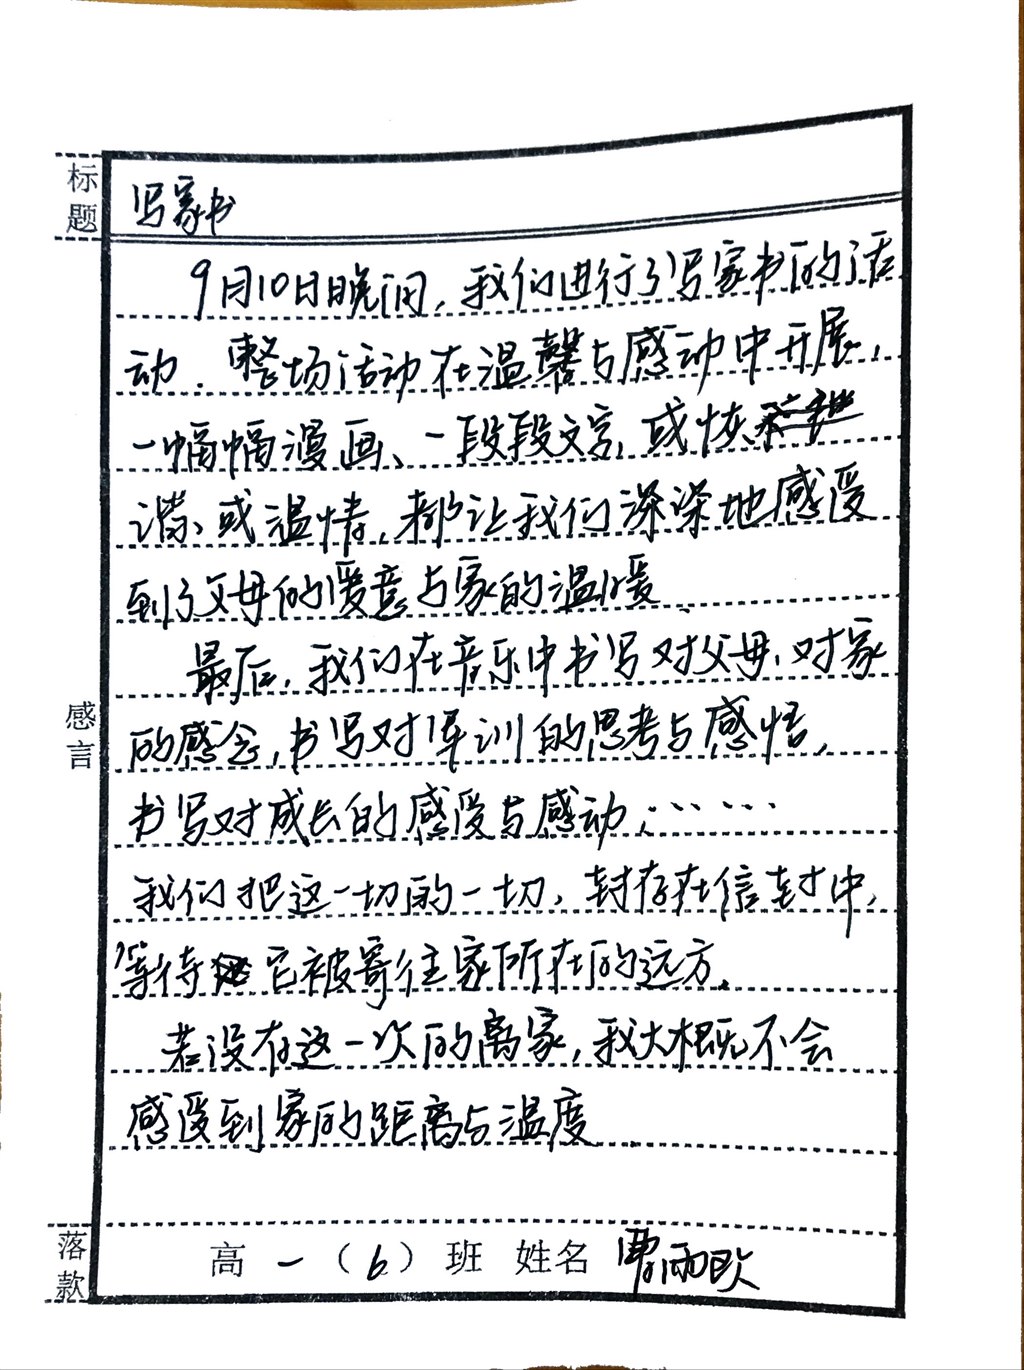 标题
写家书
9月10日晚间,我们进行了写家书的活
动.整场活动在温馨与感动中开展,
一幅幅漫画、一段段文字,或恢
谐、或温情,都让我们深深地感受
到了父母的爱意与家的温暖.
最后,我们在音乐中书写对父母、对家
的感念,书写对军训的思考与感悟,
书写对成长的感受与感动;……
我们把这一切的一切,封存在信封中,
等待它被寄往家所在的远方.
若没有这一次的离家,我大概不会
感受到家的距离与温度.
感言
落款
高一(6)班 姓名 雨欧